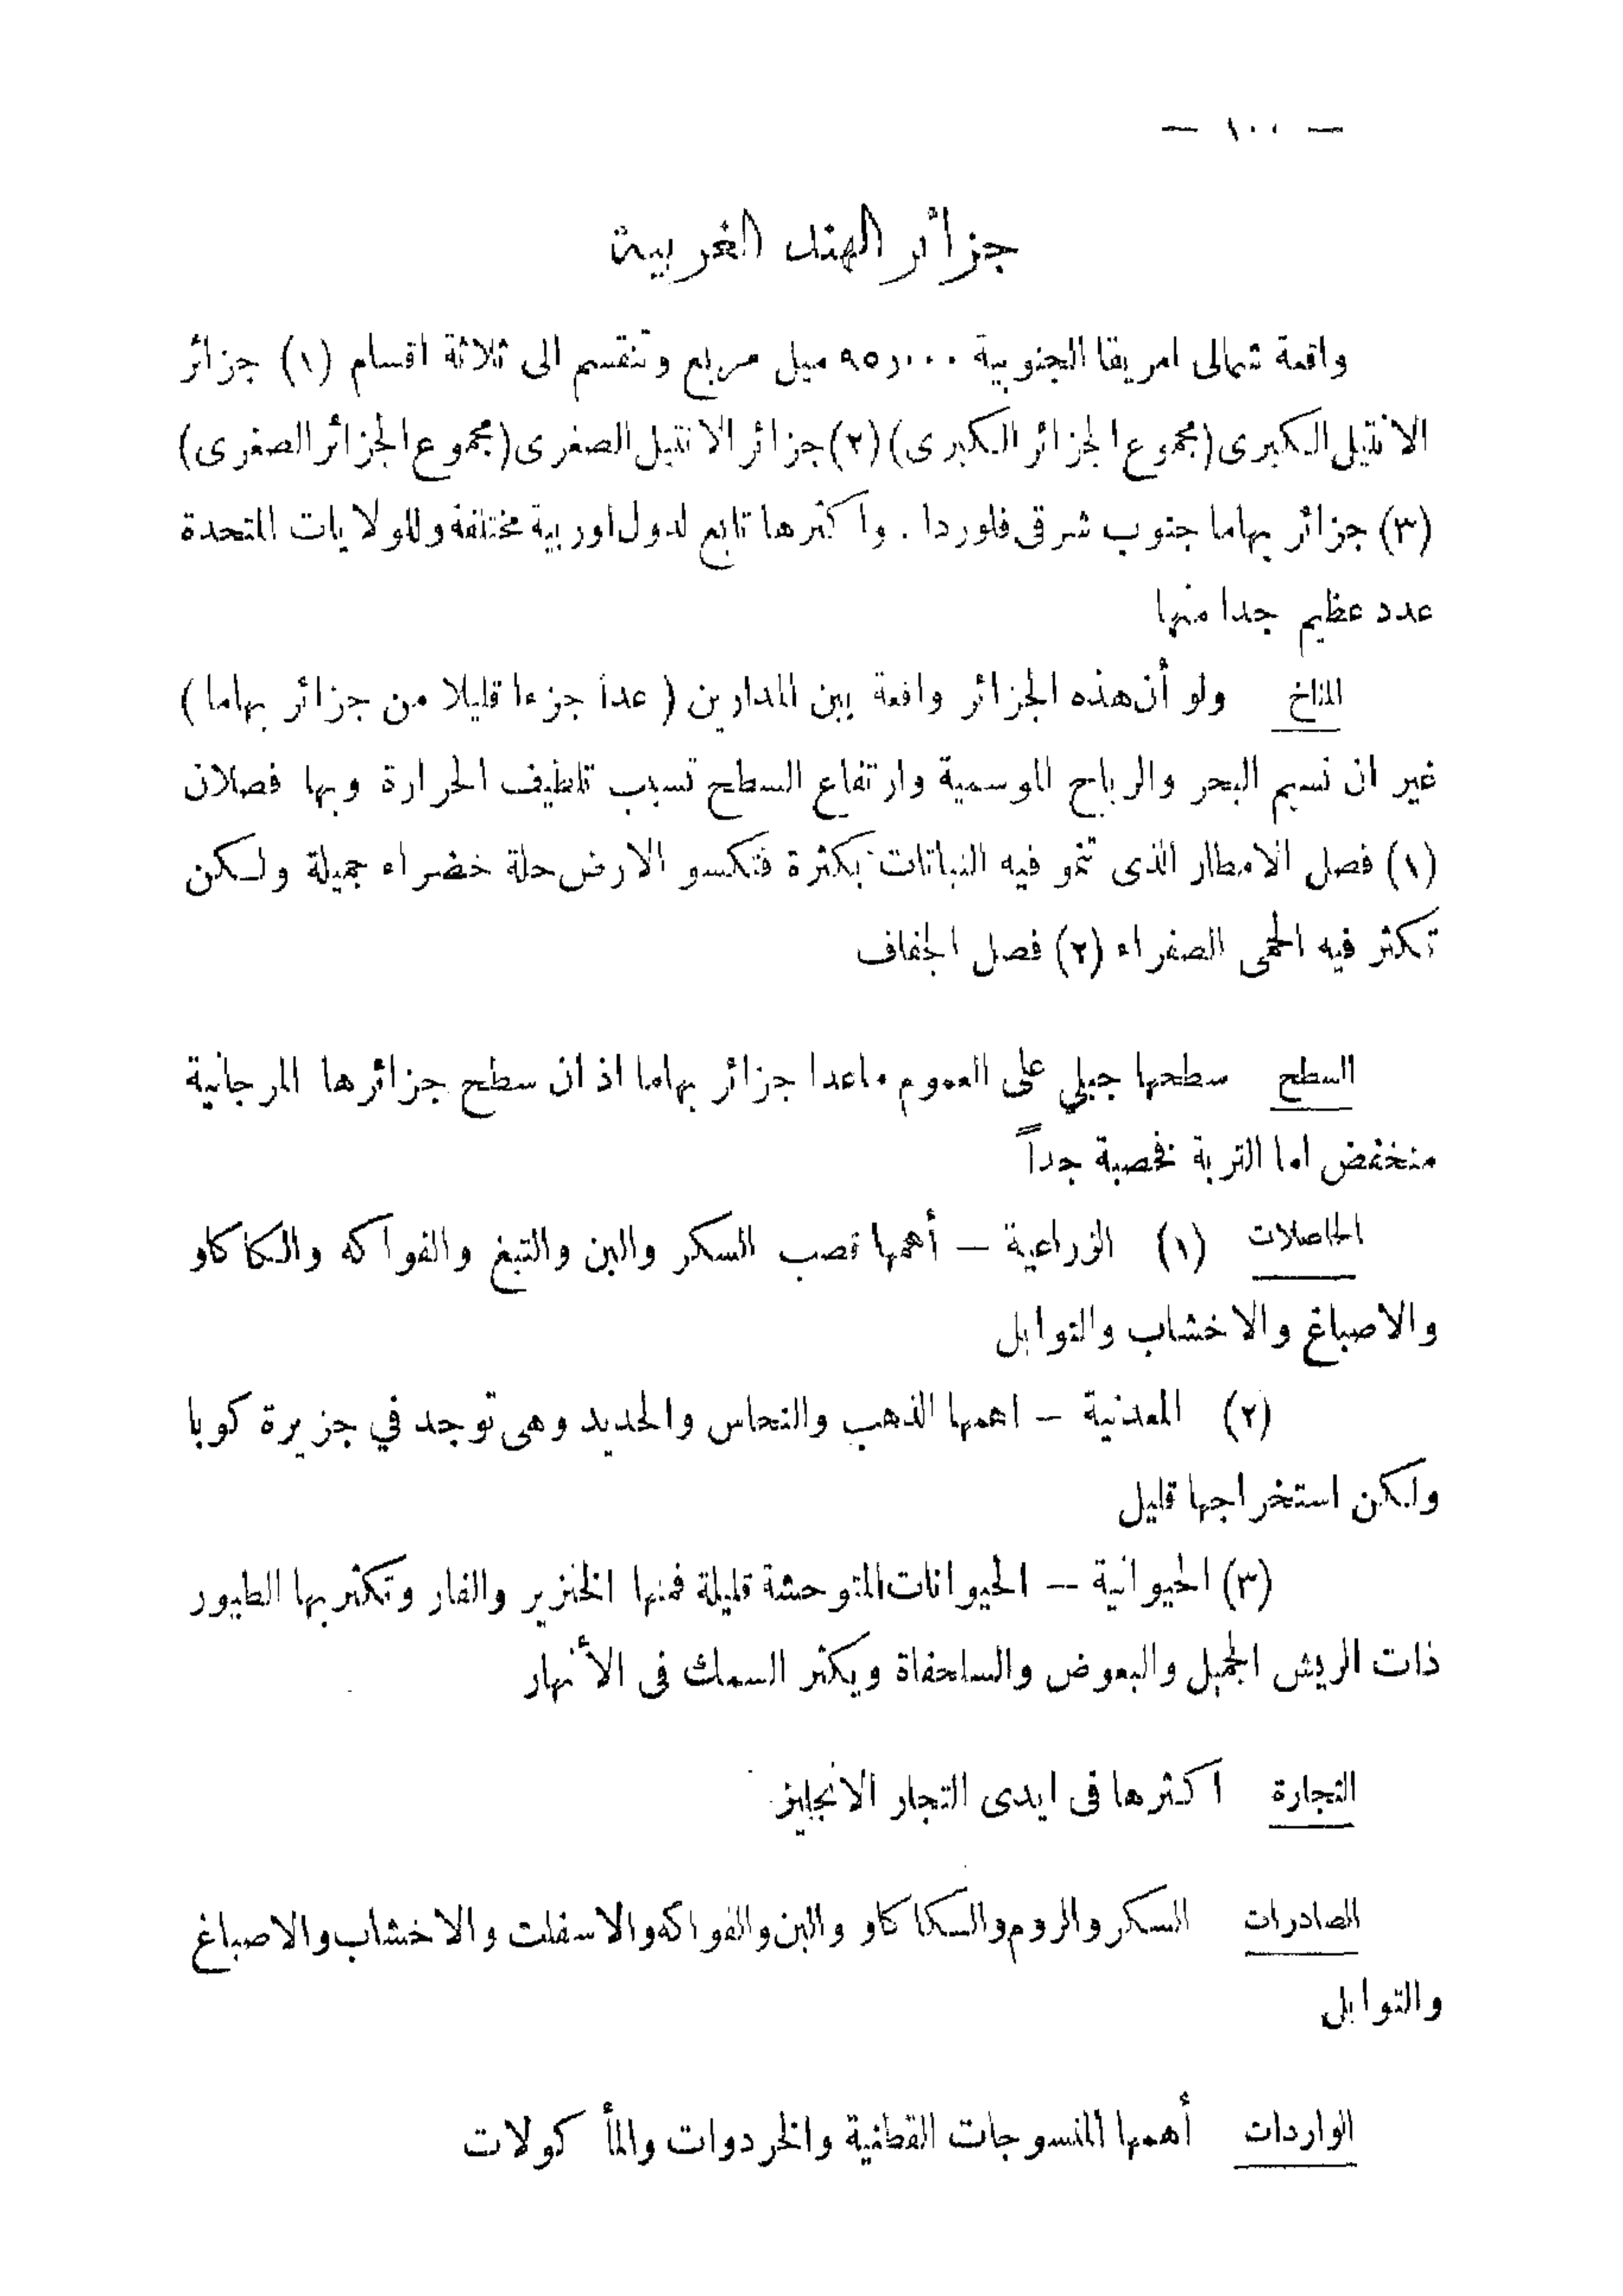 — ١٠٠ —
جزائر الهند الغربية
واقعة شمالى امريقا الجنوبية ٩٥٫٠٠٠ ميل مربع وتنقسم الى ثلاثة اقسام (١) جزائر
الانتيل الكبرى (مجموع الجزائر الكبرى) (٢) جزائر الانتيل الصغرى (مجموع الجزائر الصغرى)
(٣) جزائر بهاما جنوب شرقى فلوردا . واكثرها تابع لدول اوربية مختلفة وللولايات المتحدة
عدد عظيم جدا منها
المناخ ولو أن هذه الجزائر واقعة بين المدارين ( عدا جزءا قليلا من جزائر بهاما )
غير ان نسيم البحر والرياح الموسمية وارتفاع السطح تسبب تلطيف الحرارة وبها فصلان
(١) فصل الامطار الذى تنمو فيه النباتات بكثرة فتكسو الارض حلة خضراء جميلة ولكن
تكثر فيه الحمى الصفراء (٢) فصل الجفاف
السطح سطحها جبلي على العموم ماعدا جزائر بهاما اذ ان سطح جزائرها المرجانية
منخفض اما التربة فخصبة جداً
الحاصلات (١) الزراعية — أهمها قصب السكر والبن والتبغ والفواكه والكاكاو
والاصباغ والاخشاب والتوابل
(٢) المعدنية — اهمها الذهب والنحاس والحديد وهى توجد في جزيرة كوبا
ولكن استخراجها قليل
(٣) الحيوانية — الحيوانات المتوحشة قليلة فمنها الخنزير والفار وتكثر بها الطيور
ذات الريش الجميل والبعوض والسلحفاة ويكثر السمك فى الأنهار
التجارة اكثرها فى ايدى التجار الانجليز
الصادرات السكر والروم والكاكاو والبن والفواكه والاسفلت والاخشاب والاصباغ
والتوابل
الواردات أهمها المنسوجات القطنية والخردوات والمأكولات